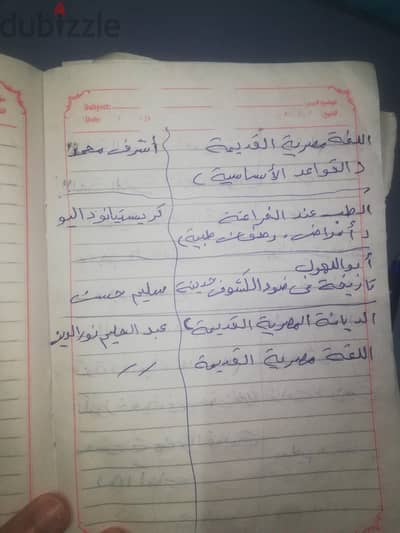 dubizzle
Subject:
Date:
اللغة مصرية القديمة أشرف محمد
(القواعد الأساسية)
الطب عند الفراعنة كريستيانو داليو
(أمراض، وصفات طبية)
أبو الهول
تاريخة فى ضوء الكشوف حديثة سليم حسن
الديانة المصرية القديمة عبد الحليم نور الدين
اللغة مصرية القديمة //